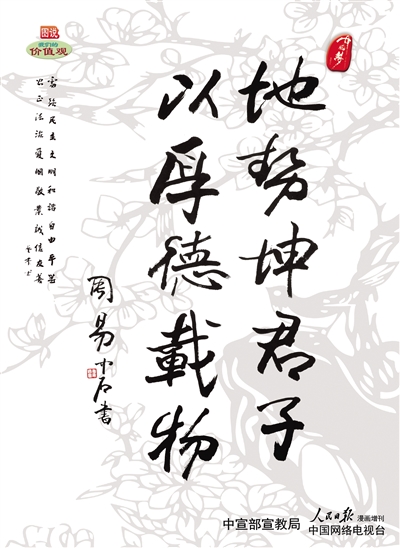 图说
我们的
价值观
中国梦
地势坤君子
以厚德載物
周易中石書
富强民主文明和谐自由平等
公正法治爱国敬業诚信友善
中宣部宣教局
人民日报 漫画增刊
中国网络电视台